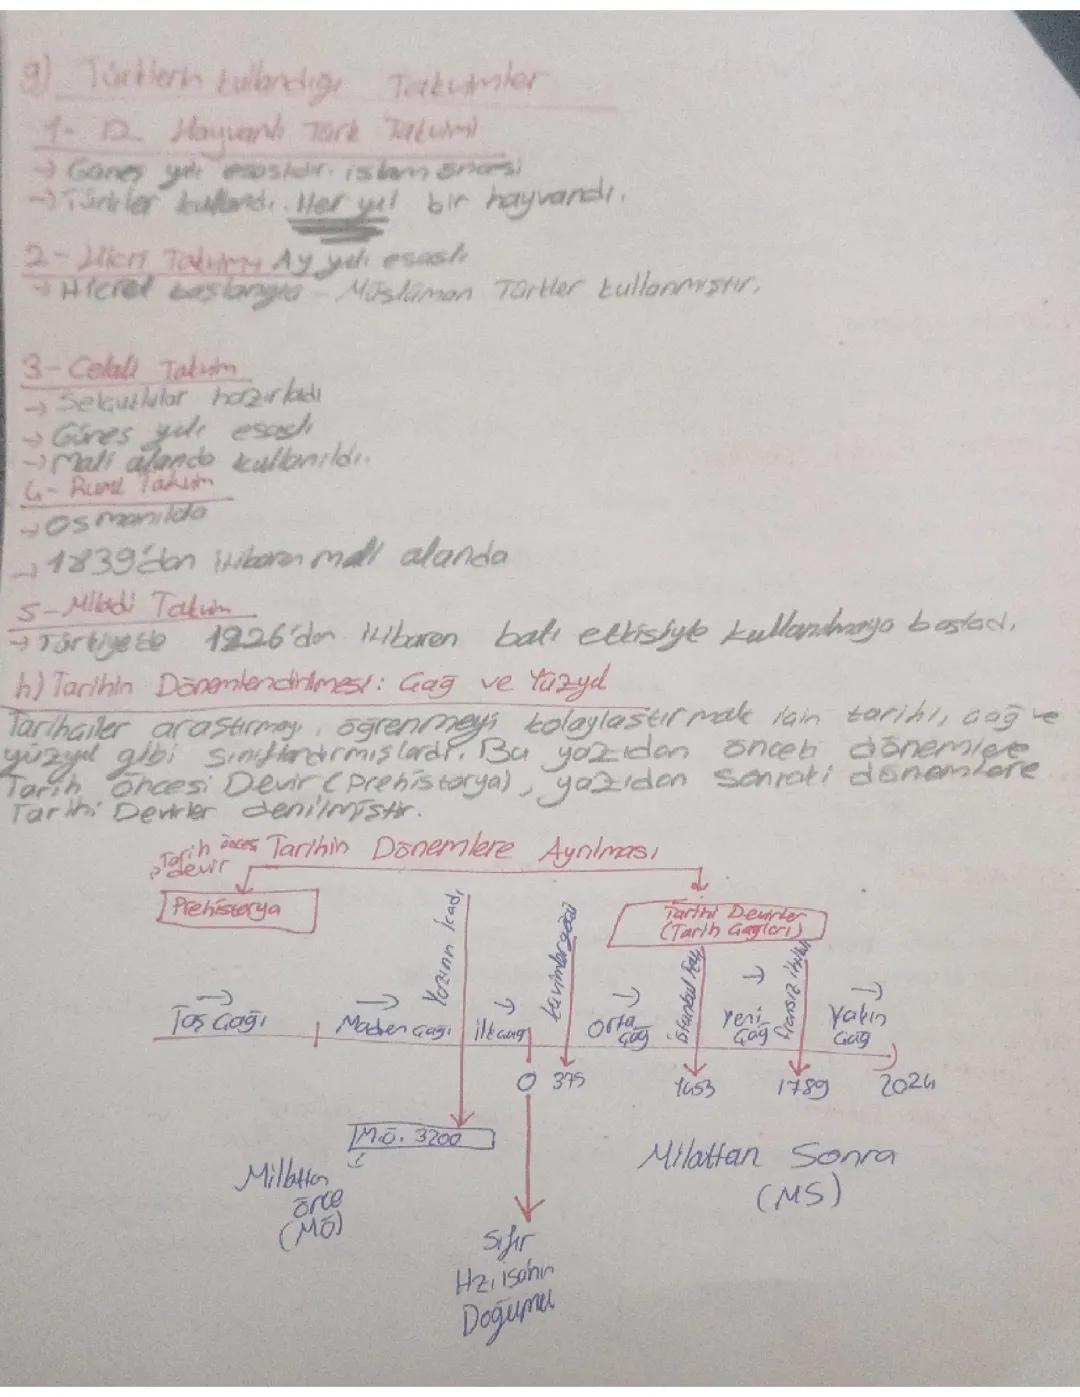 g) Türklerin kullandığı Takvimler
1- 12 Hayvanlı Türk Takvimi
→ Güneş yılı esaslıdır. islam öncesi
→ Türkler kullandı. Her yıl bir hayvandı.
2- Hicri Takvim Ay yılı esaslı
→ Hicret başlangıcı - Müslüman Türkler kullanmıştır.
3- Celali Takvim
→ Selçuklular hazırladı
→ Güneş yılı esaslı
→ Mali alanda kullanıldı.
4- Rumi Takvim
→ Osmanlıda
→ 1839'dan itibaren mali alanda
5- Miladi Takvim
→ Türkiyede 1926'dan itibaren batı etkisiyle kullanılmaya başladı.
h) Tarihin Dönemlendirilmesi: Çağ ve Yüzyıl
Tarihçiler araştırmayı, öğrenmeyi kolaylaştırmak için tarihi, çağ ve
yüzyıl gibi sınıflandırmışlardır. Bu yazıdan önceki dönemlere
Tarih öncesi Devir (Prehistorya), yazıdan sonraki dönemlere
Tarihi Devirler denilmiştir.
Tarih öncesi devir
Tarihin Dönemlere Ayrılması
Prehistorya
Yazının İcadı
kavimlergöçü
Tarihi Devirler
(Tarih Çağları)
istanbul
fransız ihtilali
Taş Çağı
Maden Çağı
ilkçağ
Orta Çağ
Yeni Çağ
Yakın Çağ
0 375 1453 1789 2024
M.Ö. 3200
Millattan
önce
(MÖ)
Milattan Sonra
(MS)
Sıfır
Hz. isanın
Doğumu